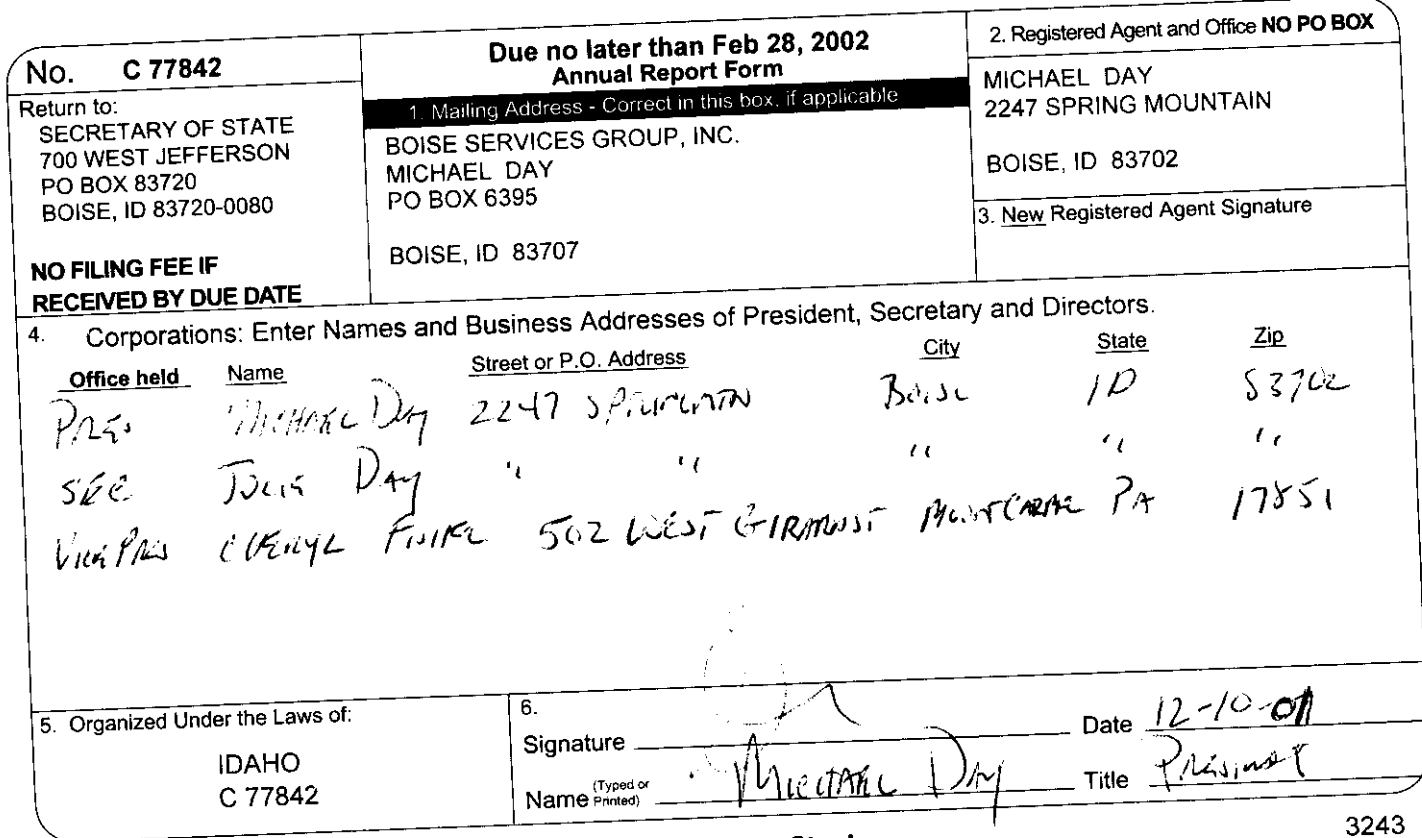 No. C 77842
Return to:
SECRETARY OF STATE
700 WEST JEFFERSON
PO BOX 83720
BOISE, ID 83720-0080
NO FILING FEE IF
RECEIVED BY DUE DATE
Due no later than Feb 28, 2002
Annual Report Form
1. Mailing Address - Correct in this box, if applicable
BOISE SERVICES GROUP, INC.
MICHAEL DAY
PO BOX 6395
BOISE, ID 83707
2. Registered Agent and Office NO PO BOX
MICHAEL DAY
2247 SPRING MOUNTAIN
BOISE, ID 83702
3. New Registered Agent Signature
4. Corporations: Enter Names and Business Addresses of President, Secretary and Directors.
Office held Name Street or P.O. Address City State Zip
PRES MICHAEL DAY 2247 Boise ID 83702
SEC JULIE DAY " " " " "
VICE PRES CHERYL 502 WEST GIRARD ST MOUNT CARMEL PA 17851
5. Organized Under the Laws of:
IDAHO
C 77842
6.
Signature
Date 12-10-01
Name (Typed or Printed) MICHAEL DAY
Title PRESIDENT
3243